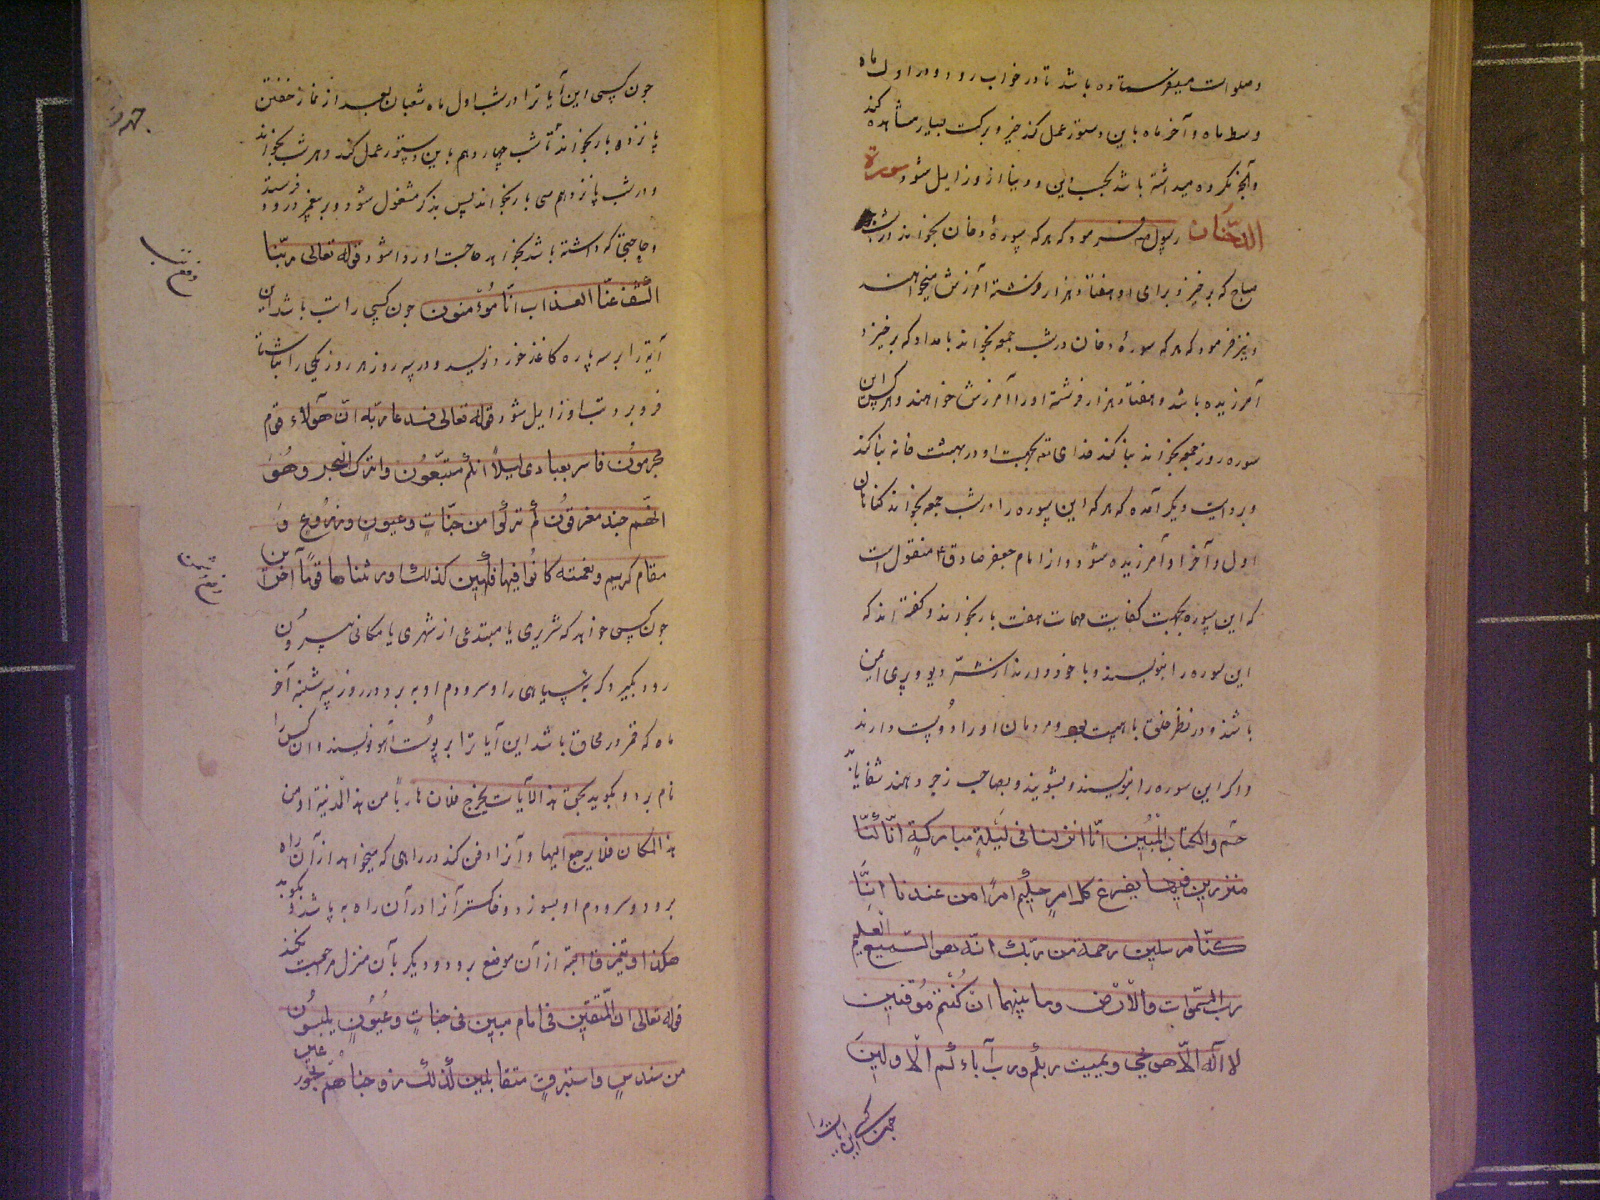 وصلوات میفرستاده باشد تا در خواب رود و در اول ماه
وسط ماه و آخر ماه باین دستور عمل کند خیر و برکت بسیار مشاهده کند
و آنچه مکروه میداشته باشد بجب این و دنیا ازو زایل شود سورة
الدخان رسول ص فرمود که هر که سورهٔ دخان بخواند در شب
صباح که برخیزد برای او هفتاد هزار فرشته آمرزش میخواهند
و نیز فرمود که هر که سورهٔ دخان در شب جمعه بخواند بامداد که برخیزد
آمرزیده باشد و هفتاد هزار فرشته او را آمرزش خواهند و هر کس این
سوره روز جمعه بخواند بنا کند خدای تعه بجهت او در بهشت خانه بنا کند
و بروایت دیگر آمده که هر که این سوره را در شب جمعه بخواند گناهان
اول و آخر او آمرزیده شود و از امام جعفر صادق ع منقول است
که این سوره بجهت کفایت مهمات هفت بار بخواند و گفته اند که
این سوره را بنویسند و با خود دارند از شرّ دیو و پری ایمن
باشند و در نظر خلق با هیبت بود و مردمان او را دوست دارند
و اگر این سوره را بنویسند و بشویند و بصاحب زحیر دهند شفا یابد
حم والکتاب المبین انّا انزلناه فی لیلة مبارکة انّا کنّا
منذرین فیها یفرغ کل امر حکیم امرًا من عندنا انّا
کنّا مرسلین رحمة من ربک انّه هو السّمیع العلیم
رب السّموات والارض وما بینهما ان کنتم مُوقنین
لا اله الّا هو یحی و یمیت ربکم و رب آباءکم الاولین
چون کسی این آیات را
چون کسی این آیات را در شب اول ماه شعبان بعد از نماز خفتن
پانزده بار بخواند تا شب چهاردهم باین دستور عمل کند و هر شب بخواند
و در شب پانزدهم سی بار بخواند پس بذکر مشغول شود و بر پیغمبر درود فرستد
و حاجتی که داشته باشد بخواهد حاجت او روا شود قوله تعالی ربّنا
اکشف عنّا العذاب انّا مؤمنون چون کسی را تب باشد این
آیة را بر سه پاره کاغذ خورد نویسد و در سه روز هر روز یکی را ناشتا
فرو برد تب او زایل شود قوله تعالی فدعا ربّه انّ هؤلاء قوم
مجرمون فاسر بعبادی لیلًا انکم متبّعون واترک البحر رهوًا
انّهم جند مغرقون کم ترکوا من جنّات وعیون وزروع و
مقام کریم ونعمة کانوا فیها فاکهین کذلک واورثناها قومًا آخرین
چون کسی خواهد که شریری یا مبتدعی از شهری یا مکانی بیرون
رود بگیرد گربه سیاهی را و سر و دم او ببرد در روز سه شنبه آخر
ماه که قمر در محاق باشد این آیات را بر پوست آهو نویسند و آن کس را
نام برد و بگوید بحق هذا الآیات یخرج فلان هاربًا من هذا المدینة او من
هذا المکان فلا یرجع الیها و آنرا دفن کند در راهی که میخواهد از آن راه
برود و سر و دم او بسوزد و خاکستر آنرا در آن راه بپاشد و بگوید
هکذا او یتفرق البتة از آن موضع برود و دیگر بآن منزل مراجعت نکند
قوله تعالی ان المتقین فی مقام مبین فی جنات وعیون یلبسون
من سندس واستبرق متقابلین کذلک وزوجناهم بحور عین